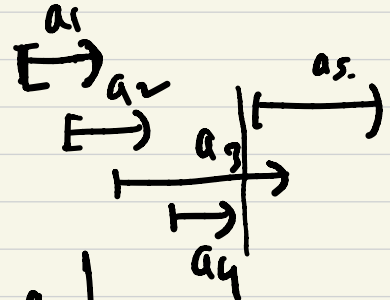 a1
a2
a5.
a3
a4